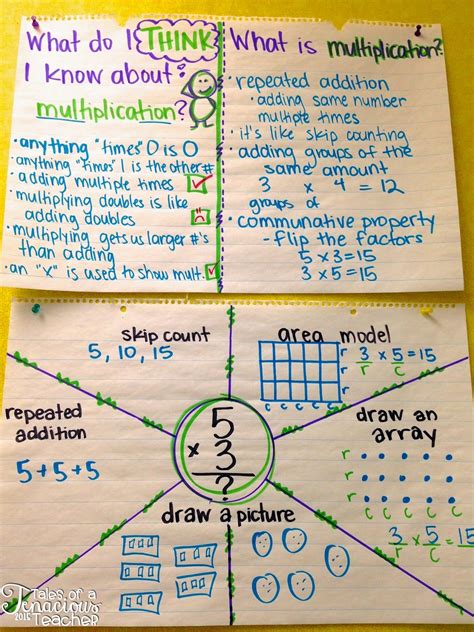 What do I THINK
I know about:
multiplication?
• anything "times" 0 is 0
• anything "times" 1 is the other #
• adding multiple times
• multiplying doubles is like
adding doubles
• multiplying gets us larger #'s
than adding
• an "x" is used to show mult.
What is multiplication?
• repeated addition
• adding same number
multiple times
• it's like skip counting
• adding groups of the
same amount
3 x 4 = 12
groups of
• communative property
- flip the factors
5 x 3 = 15
3 x 5 = 15
skip count
5, 10, 15
area model
r
r
r
c c c c c
3 x 5 = 15
r c
repeated
addition
5+5+5
5
x 3
?
draw an
array
r
r
r
c c c c c
3 x 5 = 15
r c
draw a picture
Tales of a
Tenacious
2016
Teacher